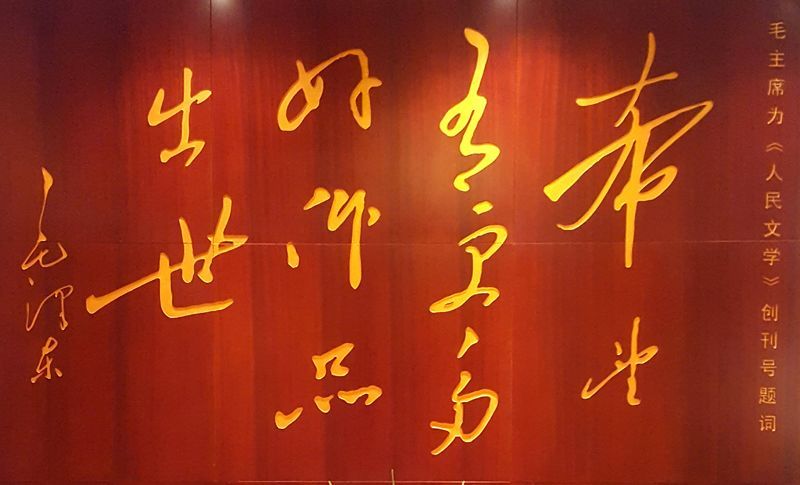 毛主席为《人民文学》创刊号题词
希望
有更多
好作品
出世
毛泽东